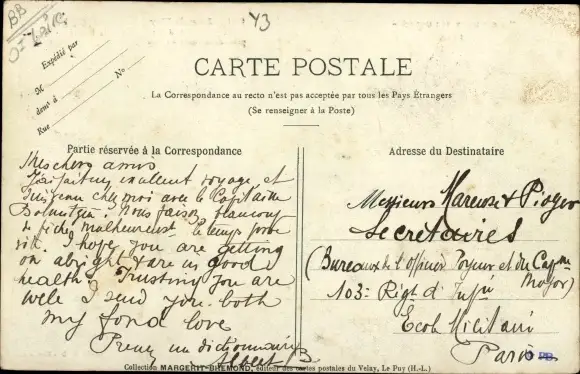 BB
43
Expédié par
M
demt à
Rue
No
CARTE POSTALE
La Correspondance au recto n'est pas acceptée par tous les Pays Étrangers
(Se renseigner à la Poste)
Partie réservée à la Correspondance
Mes chers amis
J'ai fait un excellent voyage et
chez moi avec le Capitaine
Nous faisons beaucoup
de malheureust le temps
I hope you are getting
on alright & are in good
health. Trusting you are
well I send you both
my fond love
Prenez un dictionnaire
Albert B.
Adresse du Destinataire
Messieurs Mareuse & Pioger
Secrétaires
(Bureaux de l'officier Payeur et du Capne
Major)
103e Rigt d' Infie
École Militaire
Paris
Collection MARGERIT-BRÉMOND, éditeur des cartes postales du Velay, Le Puy (H.-L.)